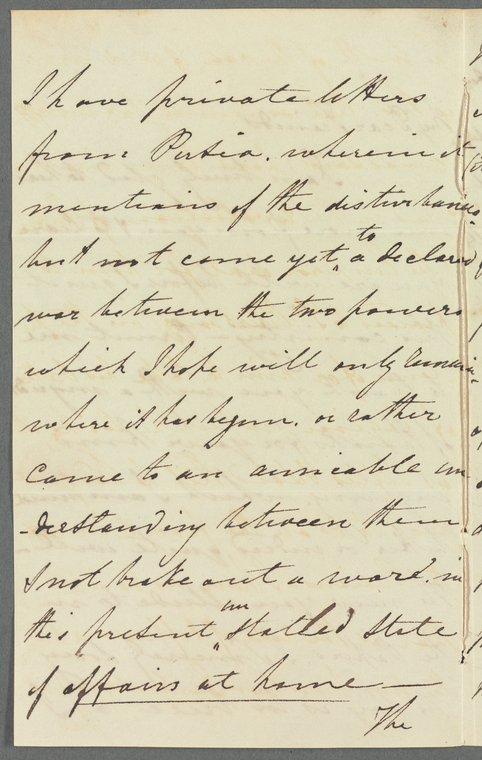 I have private letters
from Persia. wherein it
mentions of the disturbances
but not come yet to a declared
war between the two powers
which I hope will only remain
where it has begun. or rather
come to an amicable un
-derstanding between them.
& not brake out a ward. in
this present un statled state
of affairs at home —
The